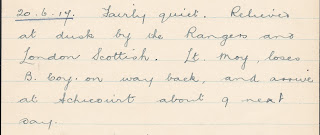 20.6.17. Fairly quiet. Relieved
at dusk by the Rangers and
London Scottish. Lt. Moy, loses
B. Coy. on way back, and arrive
at Achicourt about 9 next
day.